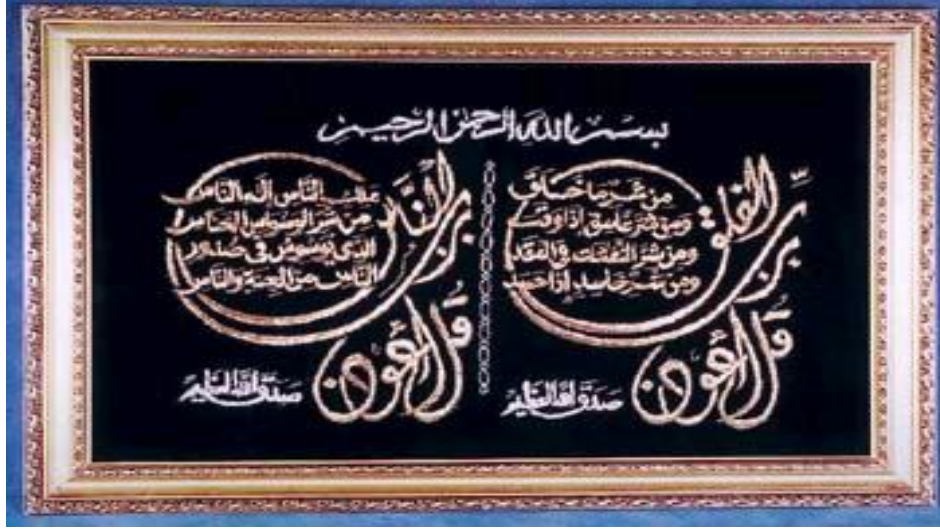 بسم الله الرحمن الرحيم
قل أعوذ
برب الفلق
من شر ما خلق
ومن شر غاسق إذا وقب
ومن شر النفثت في العقد
ومن شر حاسد إذا حسد
صدق الله العظيم
قل أعوذ
برب الناس
ملك الناس إله الناس
من شر الوسواس الخناس
الذي يوسوس في صدور
الناس من الجنة والناس
صدق الله العظيم